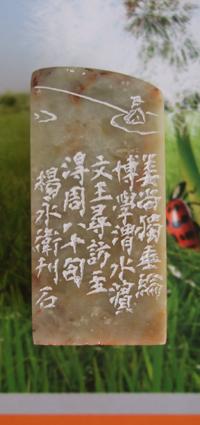 姜尚獨垂綸
博學渭水濱
文王尋訪至
得周八十旬
楊永衛刊石